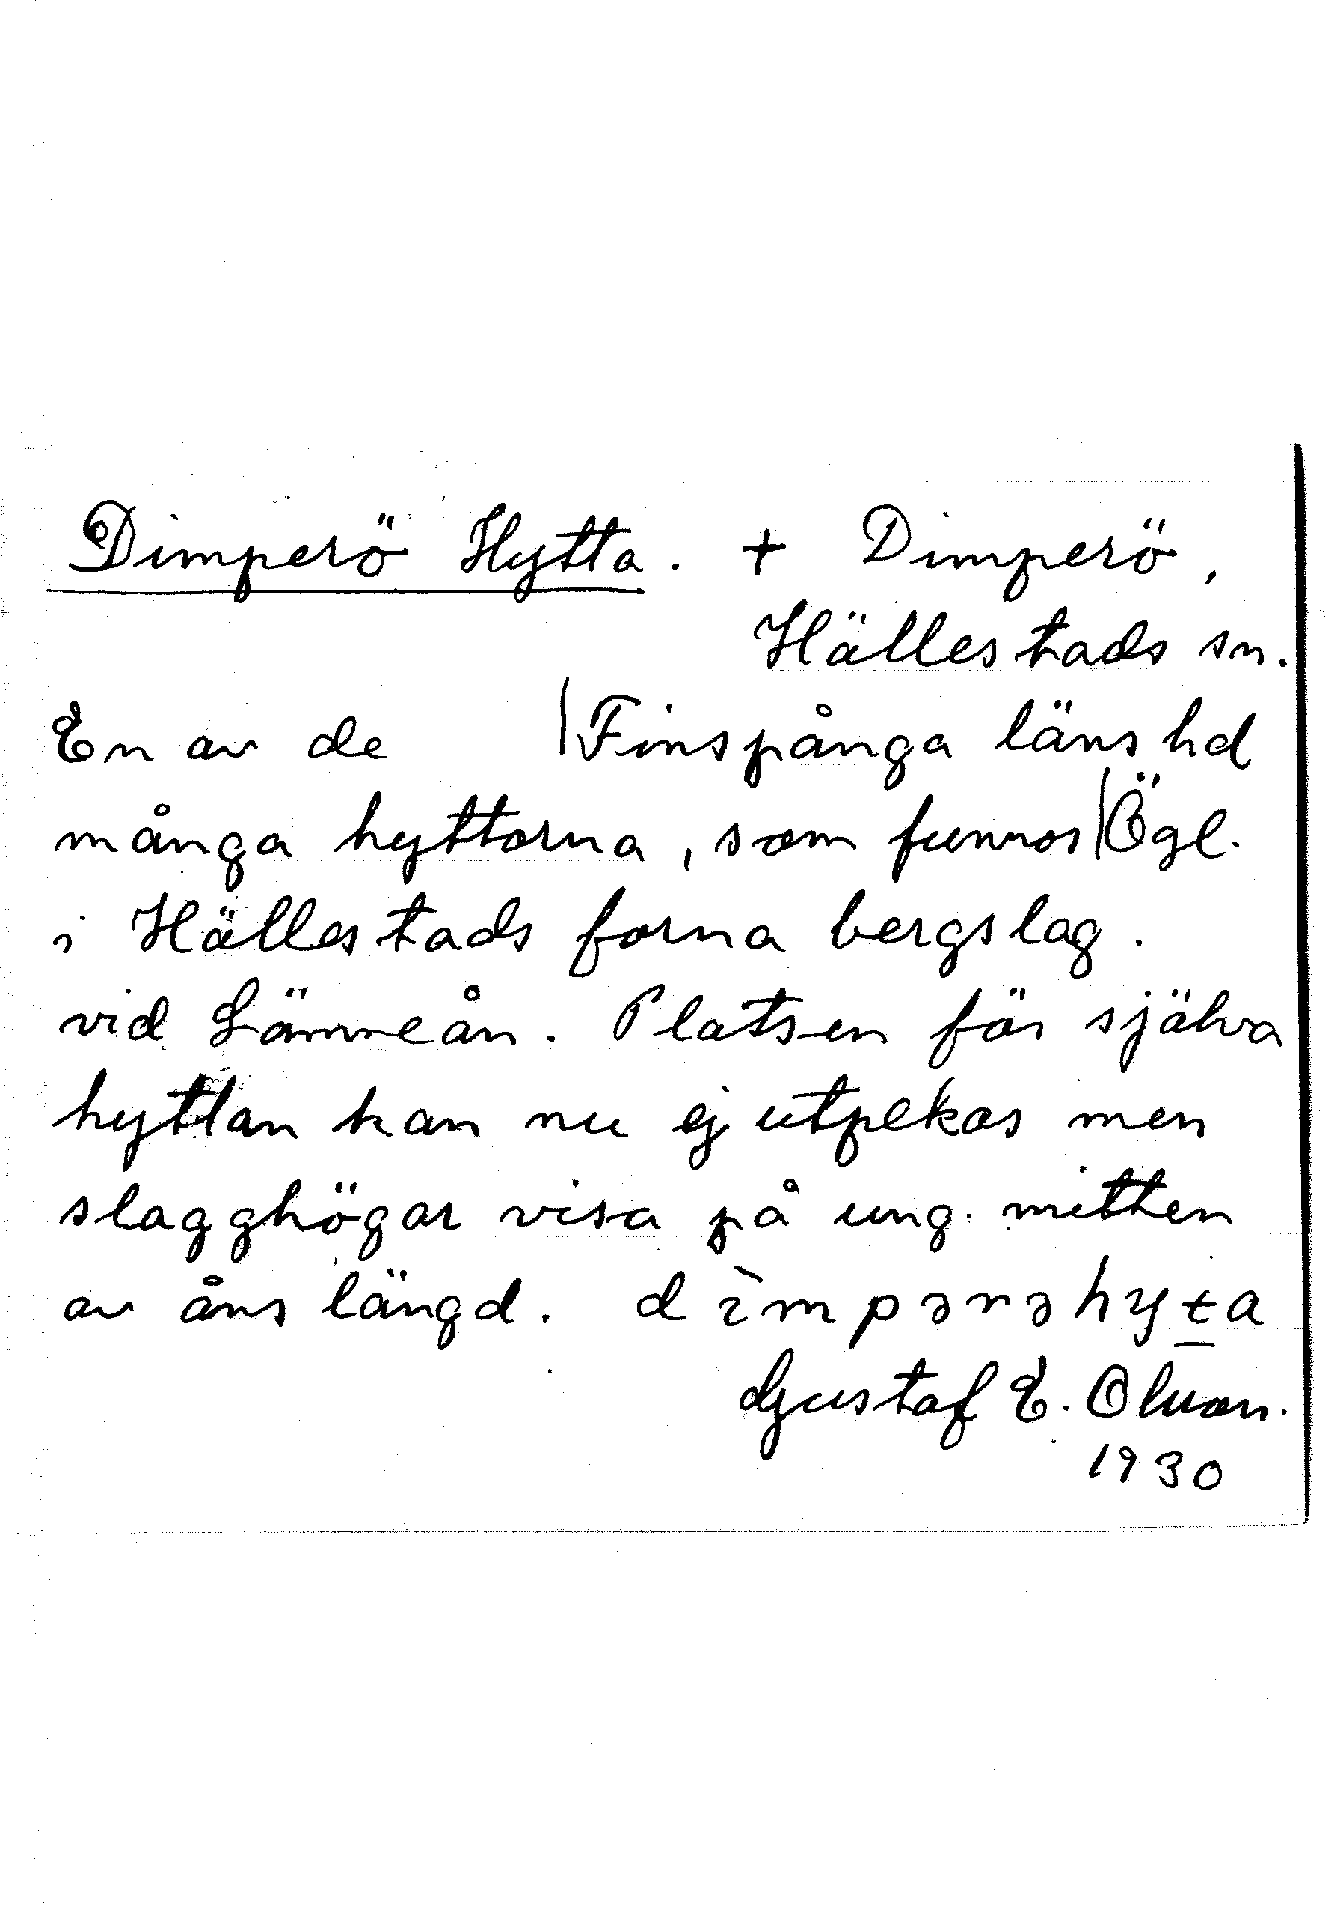 Dimperö Hytta. + Dimperö,
Hällestads sn.
En av de | Finspånga läns hd
många hyttorna, som funnos | Ögl.
i Hällestads forna bergslag.
vid Lämneån. Platsen för själva
hyttan kan nu ej utpekas men
slagghögar visa på ung. mitten
av åns längd. dìmpərəhyt̲a
Gustaf E. Olsson.
1930